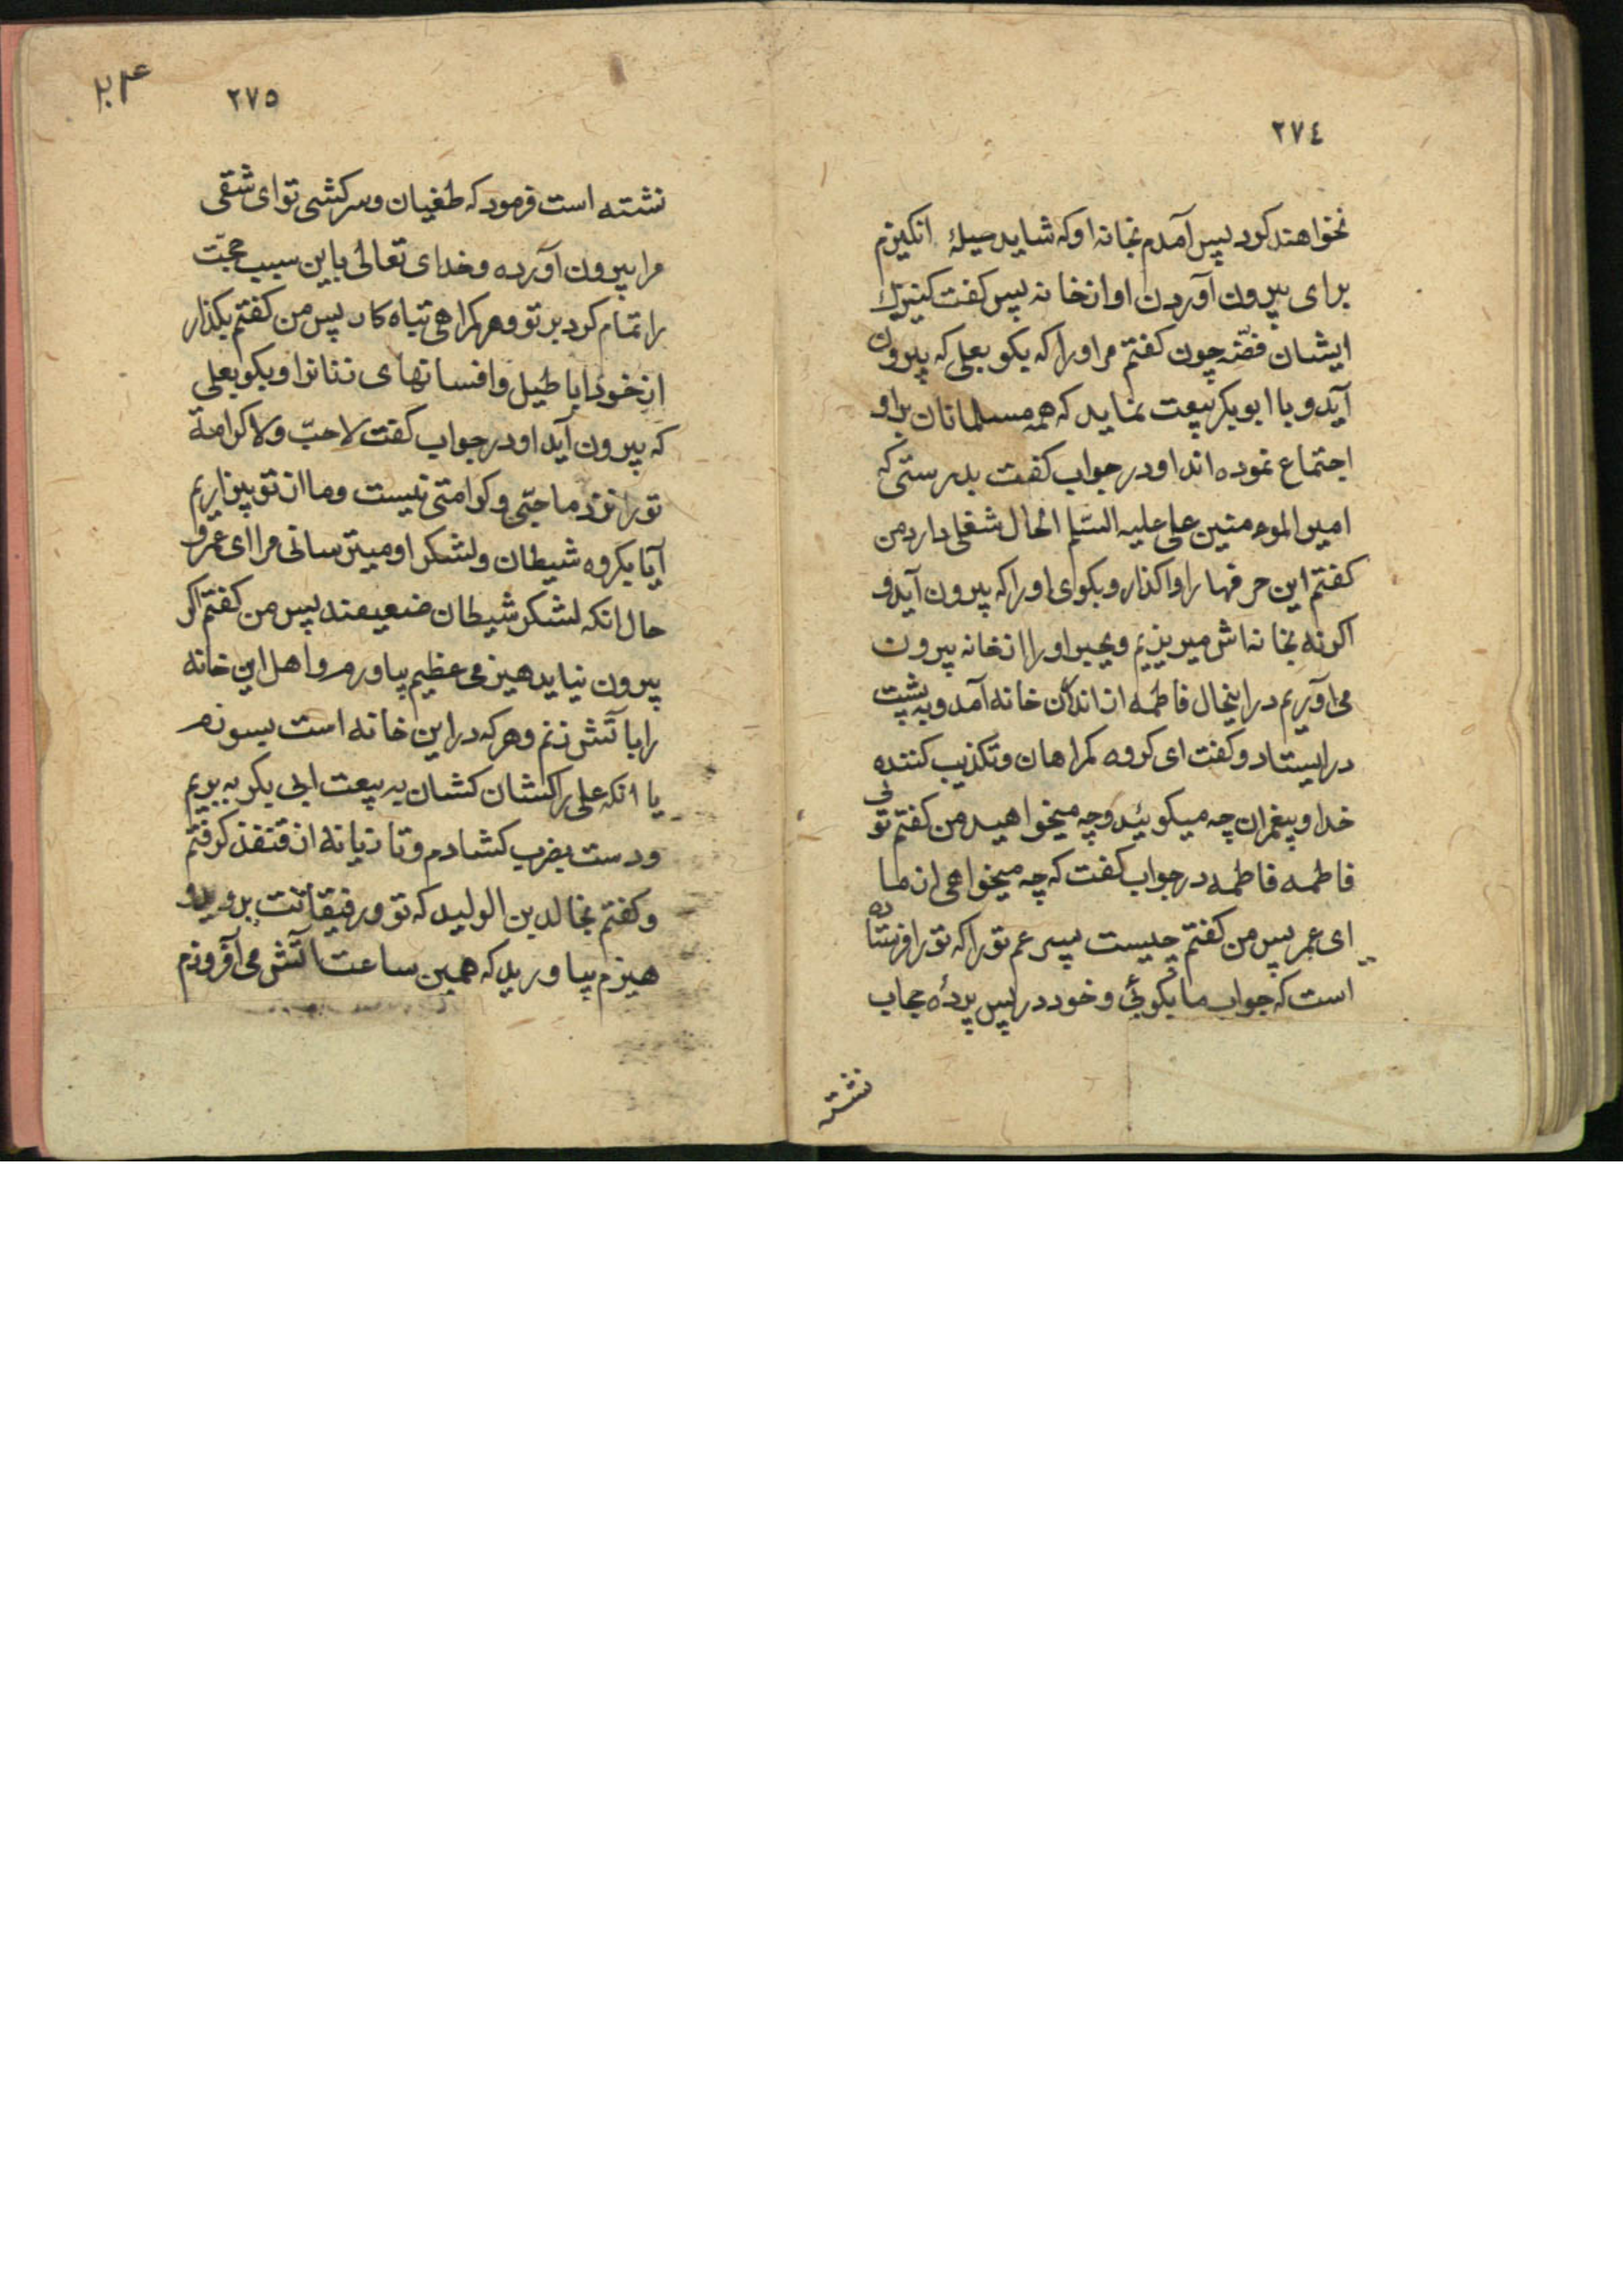 ٢٧٤
نخواهند کرد پس آمدم بخانه او که شاید حیلهٔ انکیزم
برای بیرون آوردن او از خانه پس کفت کنیزک
ایشان فضّه چون کفتم مر او را که بکو بعلی که بیرون
آید و با ابو بکر بیعت نماید که همه مسلمانان بر او
اجتماع نموده اند او در جواب کفت بدرستی که
امیر الموءمنین علی علیه السّلم الحال شغلی دارد من
کفتم این حرفها را واکذار و بکوی او را که بیرون آید و
اکر نه بخانه اش میریزیم و بجبر او را از خانه بیرون
می آوریم در اینحال فاطمه از اندرون خانه آمد و به پشت
در ایستاد و کفت ای کروه کمراهان و تکذیب کننده
خدا و پیغمران چه میکوئید و چه میخواهید من کفتم توئی
فاطمه فاطمه در جواب کفت که چه میخواهی از ما
ای عمر پس من کفتم چیست پسر عم تو را که تو را فرستاده
است که جواب ما بکوئی و خود در پس پردهٔ حجاب
نشته
٢٧٥
نشته است فرمود که طغیان و سرکشی تو ای شقی
مرا بیرون آورده و خدای تعالی باین سبب حجّت
را تمام کرد بر تو و هر کمراهی تباه کار پس من کفتم بکذار
از خود اباطیل و افسانهای زنانرا و بکو بعلی
که بیرون آید او در جواب کفت لا حبّ ولا کرامة
تو را نزد ما حبّی و کرامتی نیست و ما از تو بیزاریم
آیا بکروه شیطان و لشکر او میترسانی مرا ای عمر و
حال انکه لشکر شیطان ضعیفند پس من کفتم اکر
بیرون نیاید هیزمی عظیم بیاورم و اهل این خانه
را باتش زنم و هر که در این خانه است بسوزم
یا انکه علی را کشان کشان به بیعت ابی بکر به بریم
و دست بضرب کشادم و تازیانه از قنفذ کرفتم
و کفتم بخالد بن الولید که تو و رفیقانت بروید و
هیزم بیاورید که همین ساعت آتش می افروزم